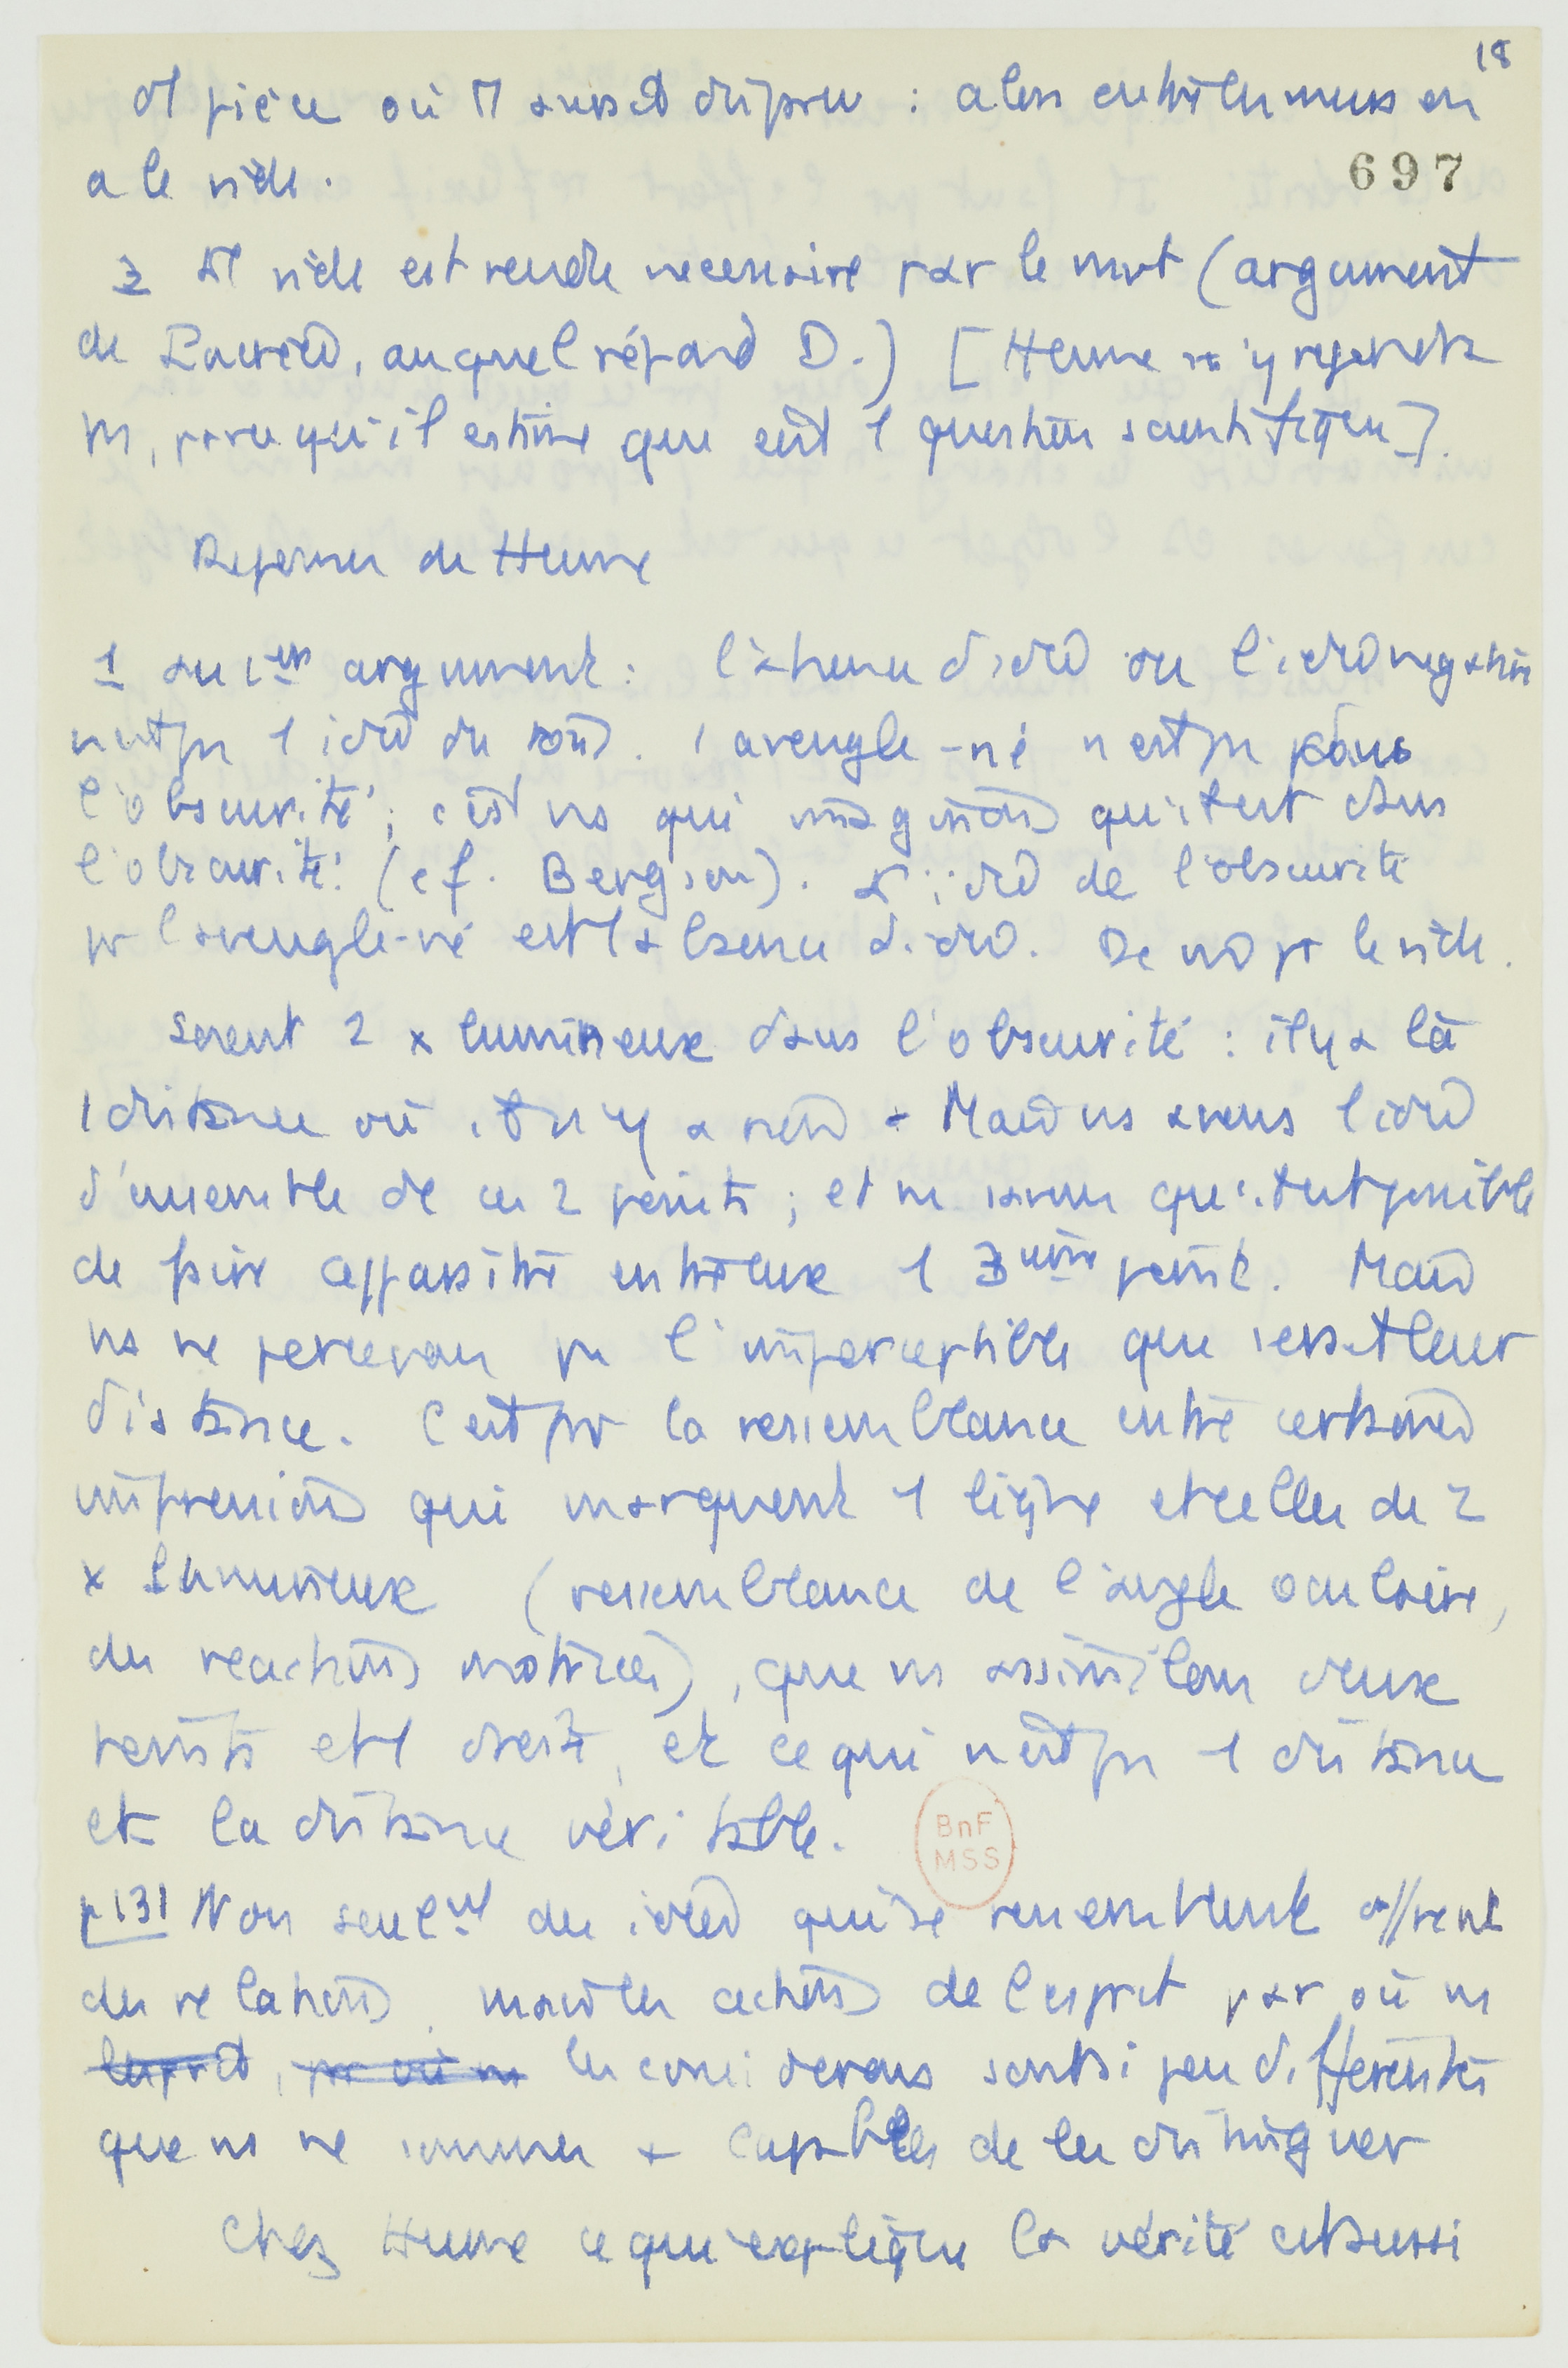 18
pièce où : alors entre les murs on
697
a le vide.
3 vide est rendu necessaire par le mvt (argument
de Lucrèce, auquel répond D.) [Hume n'y repondra
pas, parce qu'il estime que c'est 1 question scientifique].
Reponses de Hume
1 au 1er argument : l'absence d'idée ou l'idée negation
n'est pas 1 idée du tout. 1 aveugle-né n'est pas dans
l'obscurité ; c'est ns qui imaginons qu'il est dans
l'obscurité (cf. Bergson). L'idée de l'obscurité
pr l'aveugle-né est l'absence d'idée. De m pr le vide.
Soient 2 x lumineux dans l'obscurité : il y a là
1 distance où il n'y a rien. Mais ns avons l'idée
d'ensemble de ces 2 points ; et ns savons qu'il est possible
de faire apparaître entre eux 1 3ème point. Mais
ns ne percevons pas l'imperceptible que serait leur
distance. C'est par la ressemblance entre certaines
impressions qui marquent 1 ligne et celles de 2
x lumineux (ressemblance de l'angle oculaire,
des reactions motrices), que ns assimilons deux
points et 1 droite, et ce qui n'est pas 1 distance
et la distance véritable.
p 131 Non seulmt des idées qui se ressemblent offrent
des relations, mais les actions de l'esprit par où ns
les considerons sont si peu différentes
que ns ne sommes capables de les distinguer
BnF
MSS
Chez Hume ce qui explique la vérité est aussi